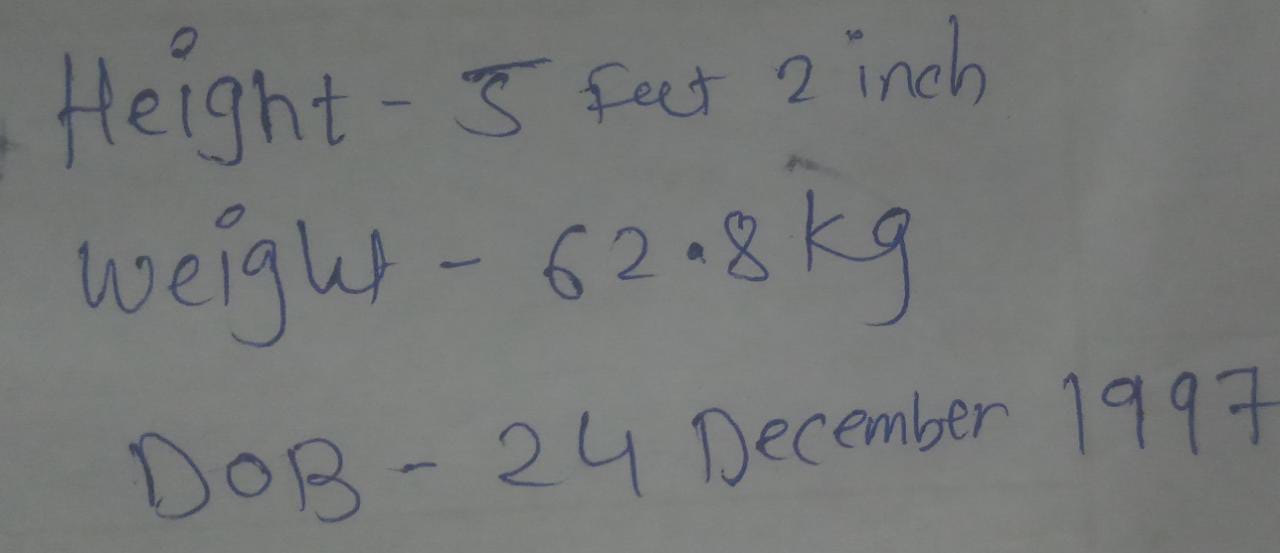 Height - 5 feet 2 inch
Weight - 62.8 kg
DOB - 24 December 1997